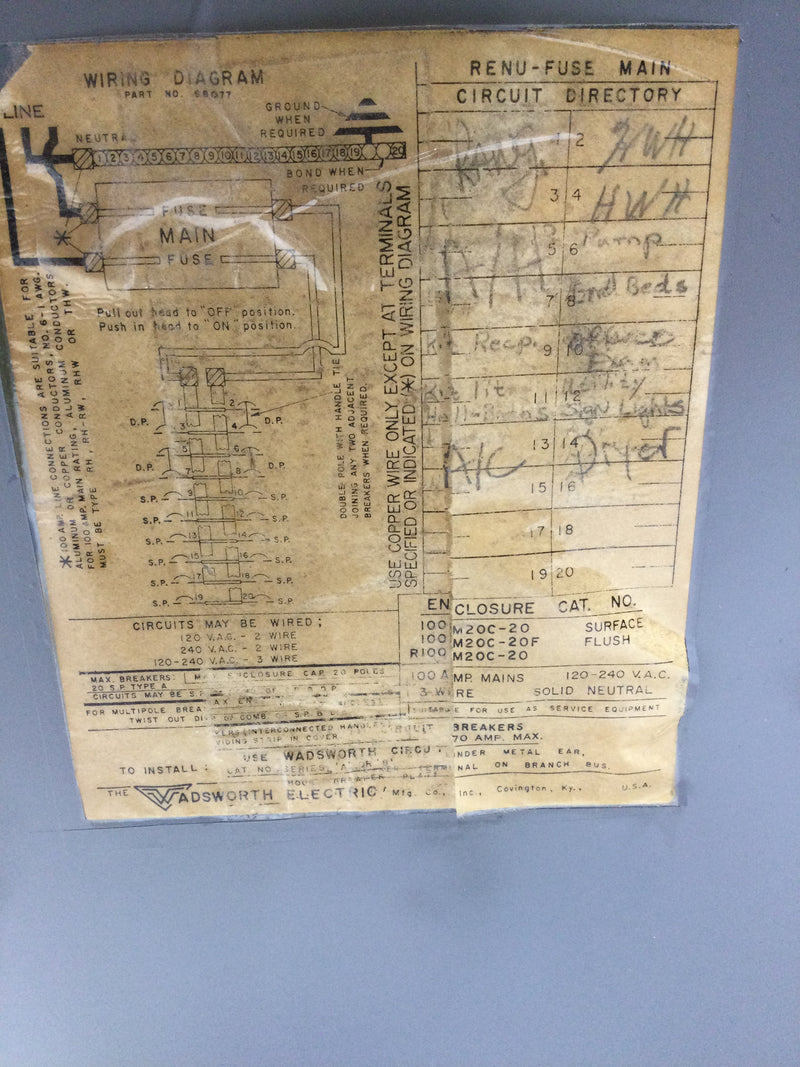 WIRING DIAGRAM
PART NO.
LINE
NEUTRAL
GROUND
WHEN
REQUIRED
1 2 3 4 5 6 7 8 9 10 11 12 13 14 15 16 17 18 19 20
BOND WHEN
REQUIRED
FUSE
MAIN
FUSE
Pull out head to "OFF" position.
Push in head to "ON" position.
*100 AMP. LINE CONNECTIONS ARE SUITABLE FOR
ALUMINUM OR COPPER CONDUCTORS, NO. 6-1 AWG.
FOR 100 AMP. MAIN RATING, ALUMINUM CONDUCTORS
MUST BE TYPE RH, RH-RW, RHW OR THW.
1 2
D.P. 3 4 D.P.
5 6
D.P. 7 8 D.P.
S.P. 9 10 S.P.
S.P. 11 12 S.P.
S.P. 13 14 S.P.
S.P. 15 16 S.P.
S.P. 17 18 S.P.
S.P. 19 20 S.P.
DOUBLE POLE WITH HANDLE TIE
JOINING ANY TWO ADJACENT
BREAKERS WHEN REQUIRED.
USE COPPER WIRE ONLY EXCEPT AT TERMINALS
SPECIFIED OR INDICATED (*) ON WIRING DIAGRAM
CIRCUITS MAY BE WIRED;
120 V.A.C. - 2 WIRE
240 V.A.C. - 2 WIRE
120-240 V.A.C. - 3 WIRE
MAX. BREAKERS: CAP. 20 POLES
20 S.P. TYPE A
CIRCUITS MAY BE S.P.
FOR MULTIPOLE
TWIST OUT
INTERCONNECTED HANDLE
STRIP IN COVER
USE WADSWORTH
TO INSTALL:
CAT. NO. SERIES
THE WADSWORTH ELECTRIC Mfg. Co., Inc., Covington, Ky., U.S.A.
RENU-FUSE MAIN
CIRCUIT DIRECTORY
Range 1 2 HWH
3 4 HWH
5 6 Pump
7 8 Beds
Kit Recp. 9 10
Kit Lit 11 12 Utility
Sign Lights
A/C 13 14 Dryer
15 16
17 18
19 20
ENCLOSURE CAT. NO.
100 M20C-20 SURFACE
100 M20C-20F FLUSH
R100 M20C-20
100 AMP. MAINS 120-240 V.A.C.
3-WIRE SOLID NEUTRAL
SUITABLE FOR USE AS SERVICE EQUIPMENT
BREAKERS
70 AMP. MAX.
UNDER METAL EAR,
ON BRANCH BUS.